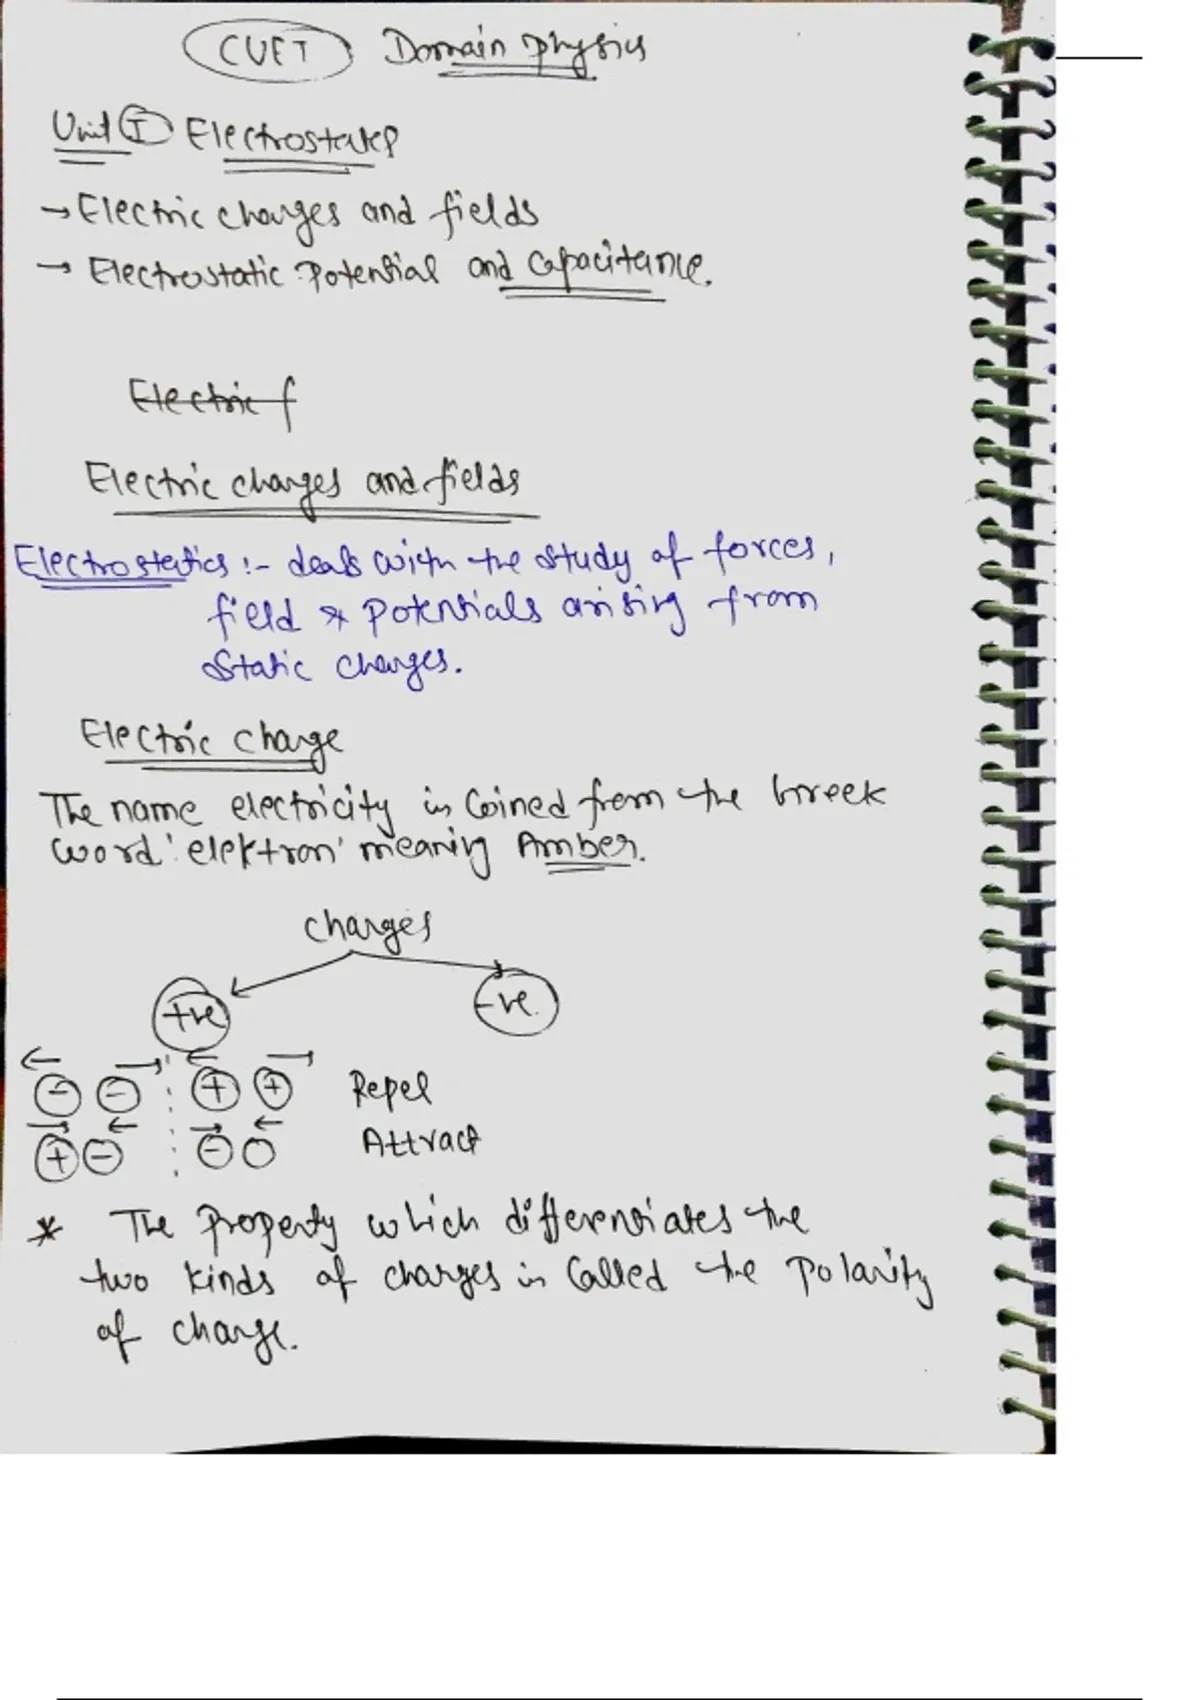 CUET Domain physics
Unit I Electrostatics
→ Electric charges and fields
→ Electrostatic Potential and Capacitance.
Electric f
Electric charges and fields
Electrostatics :- deals with the study of forces,
field & Potentials arising from
Static charges.
Electric charge
The name electricity is Coined from the Greek
word 'elektron' meaning Amber.
charges
+ve -ve
- - + + Repel
+ - - Attract
* The Property which differentiates the
two kinds of charges is Called the Polarity
of charge.